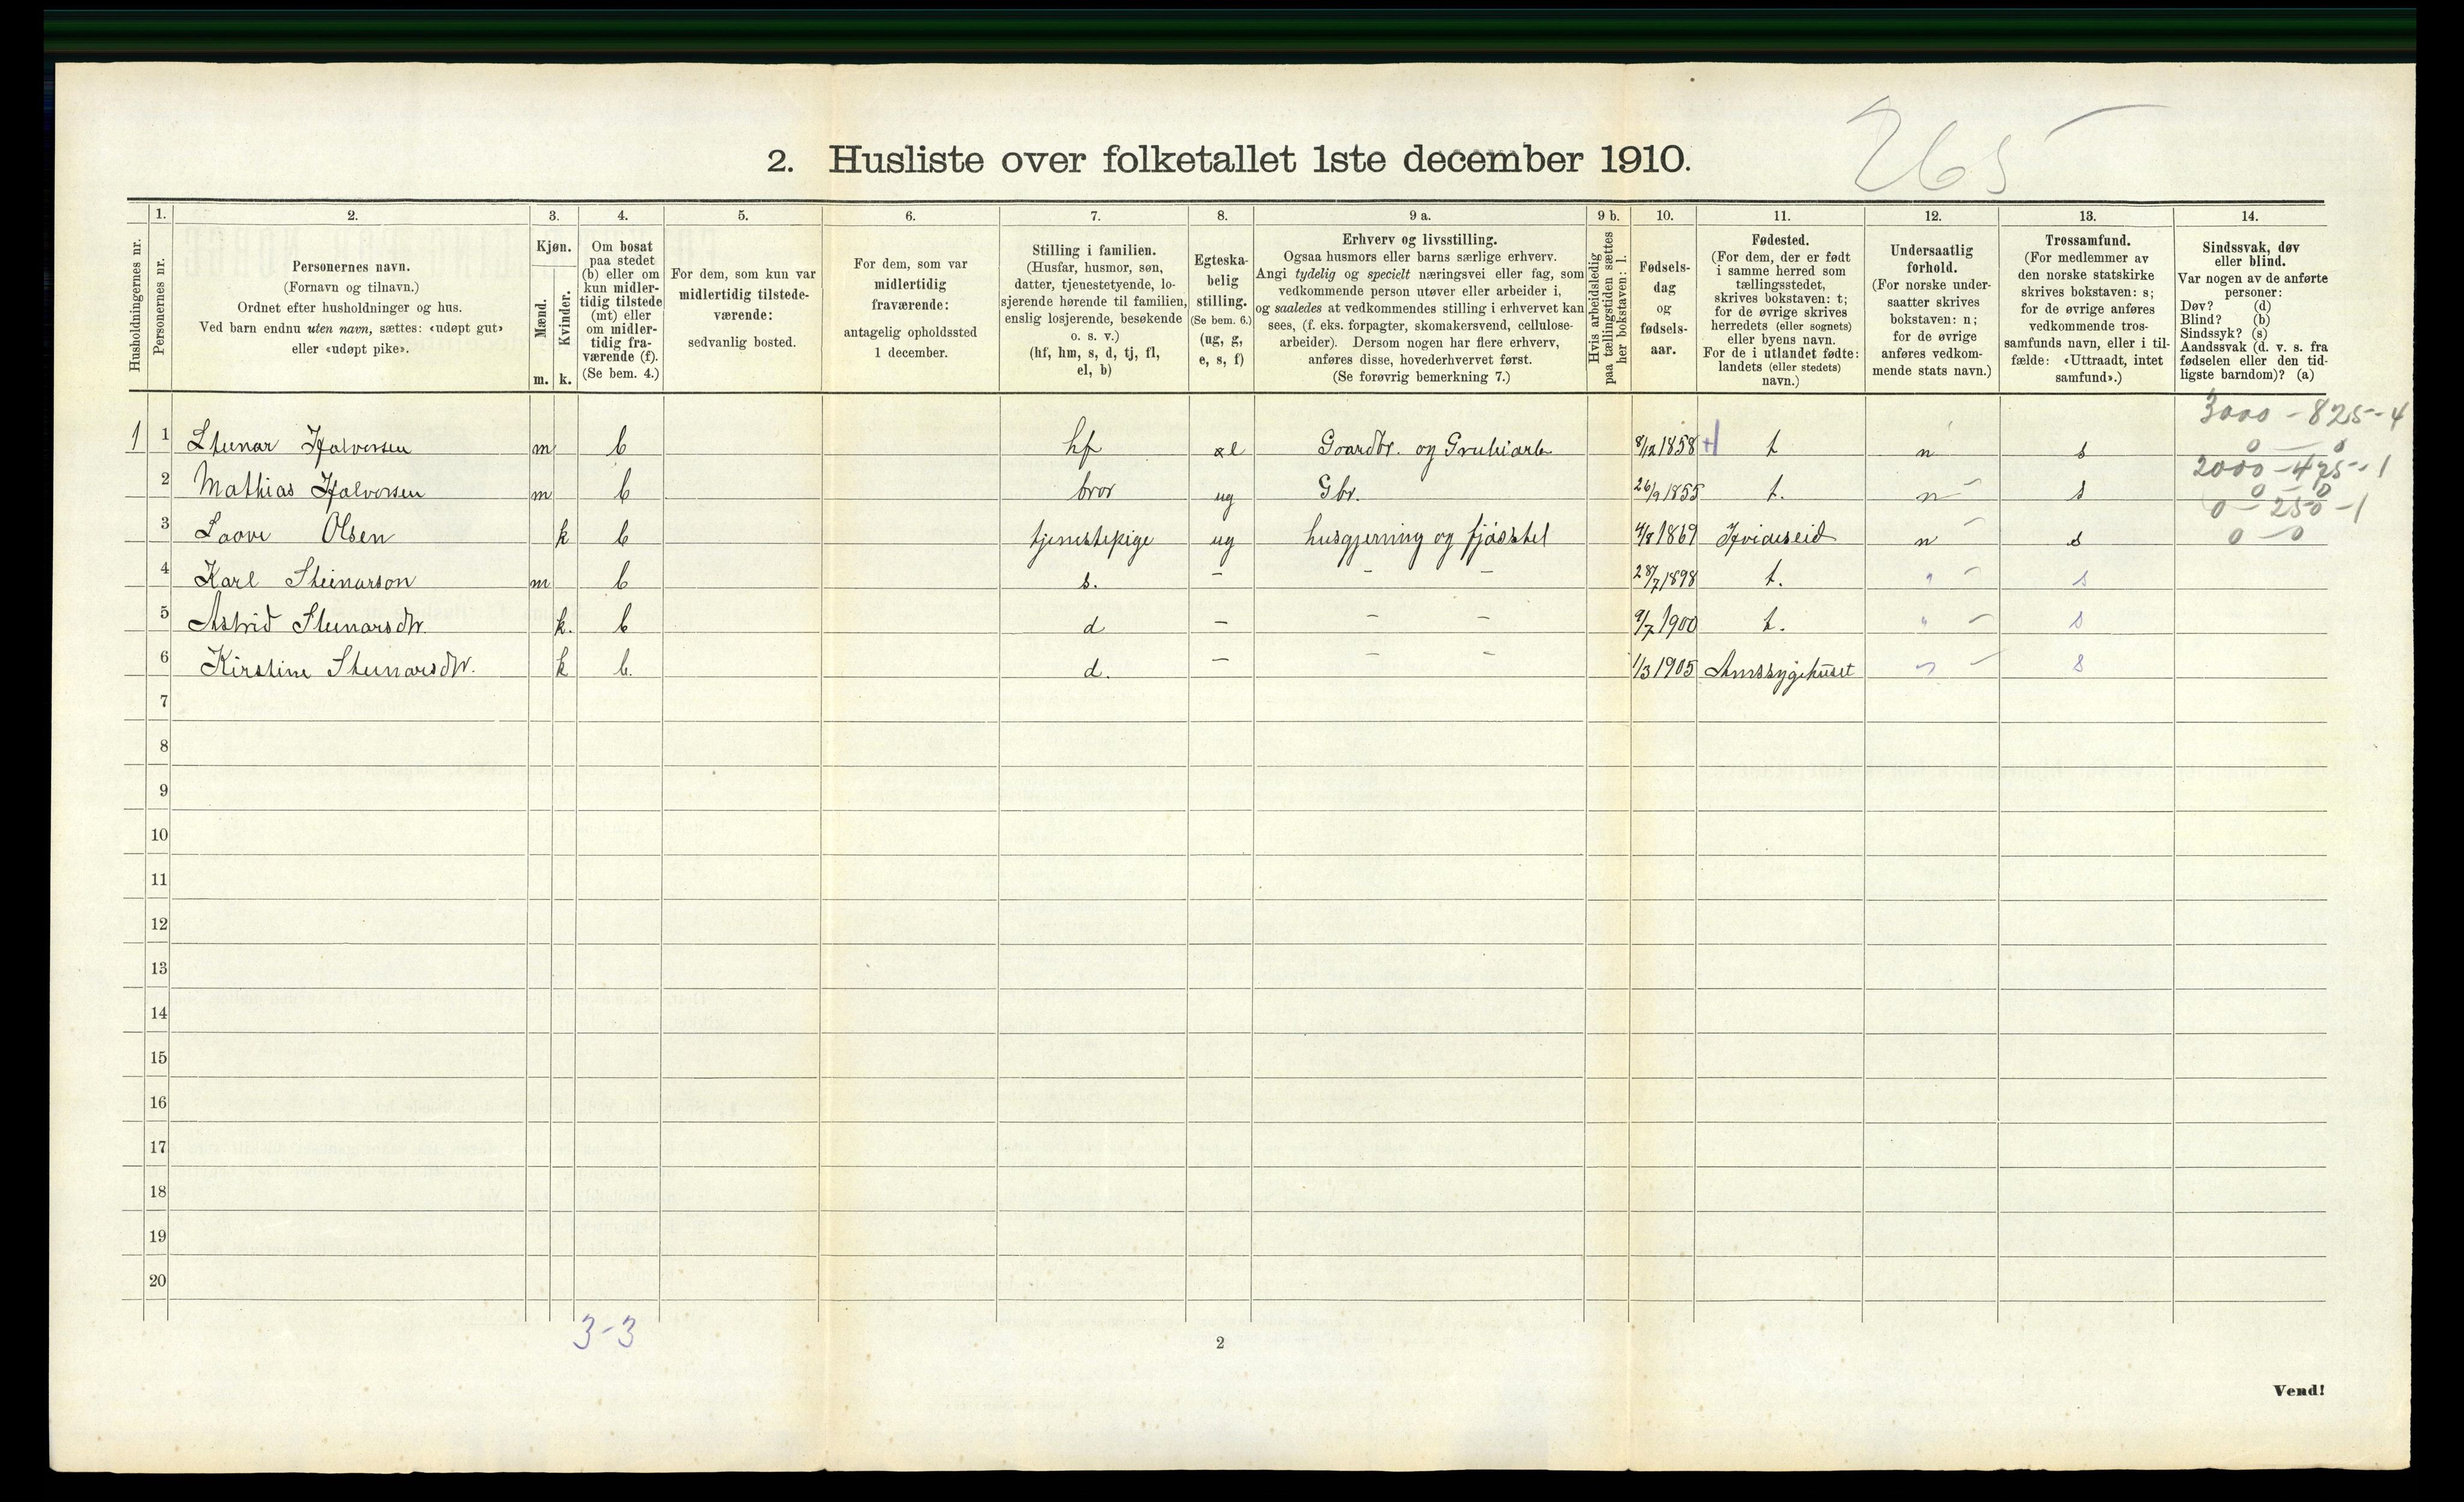 265
2. Husliste over folketallet 1ste december 1910.
1. 2. 3. 4. 5. 6. 7. 8. 9 a. 9 b. 10. 11. 12. 13. 14.
Husholdningernes nr.
Personernes nr.
Personernes navn.
(Fornavn og tilnavn.)
Ordnet efter husholdninger og hus.
Ved barn endnu uten navn, sættes: «udøpt gut»
eller «udøpt pike».
Kjøn.
Mænd.
Kvinder.
m. k.
Om bosat
paa stedet
(b) eller om
kun midler-
tidig tilstede
(mt) eller
om midler-
tidig fra-
værende (f).
(Se bem. 4.)
For dem, som kun var
midlertidig tilstede-
værende:
sedvanlig bosted.
For dem, som var
midlertidig
fraværende:
antagelig opholdssted
1 december.
Stilling i familien.
(Husfar, husmor, søn,
datter, tjenestetyende, lo-
sjerende hørende til familien,
enslig losjerende, besøkende
o. s. v.)
(hf, hm, s, d, tj, fl,
el, b)
Egteska-
belig
stilling.
(Se bem. 6.)
(ug, g,
e, s, f)
Erhverv og livsstilling.
Ogsaa husmors eller barns særlige erhverv.
Angi tydelig og specielt næringsvei eller fag, som
vedkommende person utøver eller arbeider i,
og saaledes at vedkommendes stilling i erhvervet kan
sees, (f. eks. forpagter, skomakersvend, cellulose-
arbeider). Dersom nogen har flere erhverv,
anføres disse, hovederhvervet først.
(Se forøvrig bemerkning 7.)
Hvis arbeidsledig
paa tællingstiden sættes
her bokstaven: l.
Fødsels-
dag
og
fødsels-
aar.
Fødested.
(For dem, der er født
i samme herred som
tællingsstedet,
skrives bokstaven: t;
for de øvrige skrives
herredets (eller sognets)
eller byens navn.
For de i utlandet fødte:
landets (eller stedets)
navn.)
Undersaatlig
forhold.
(For norske under-
saatter skrives
bokstaven: n;
for de øvrige
anføres vedkom-
mende stats navn.)
Trossamfund.
(For medlemmer av
den norske statskirke
skrives bokstaven: s;
for de øvrige anføres
vedkommende tros-
samfunds navn, eller i til-
fælde: «Uttraadt, intet
samfund».)
Sindssvak, døv
eller blind.
Var nogen av de anførte
personer:
Døv? (d)
Blind? (b)
Sindssyk? (s)
Aandssvak (d. v. s. fra
fødselen eller den tid-
ligste barndom)? (a)
3000 - 825 - 4
1 1 Steinar Halvorsen m b hf Gaardbr. og Grubearb 8/12 1858 t n s 0 - 0
2000 - 475 - 1
2 Mathias Halvorsen m b bror ug Gbr. 26/9 1855 t. n s 0 - 0
0 - 250 - 1
3 Laave Olsen k b tjenestepige ug husgjerning og fjøsstel 4/8 1869 Hvideseid n s 0 - 0
4 Karl Steinarson m b s. - - - 28/7 1898 t. " - s
5 Astrid Steinarsdtr. k. b d - - - 9/7 1900 t. " - s
6 Kirstine Steinarsdtr. k b. d. - - - 1/3 1905 Amtssygehuset " - s
7
8
9
10
11
12
13
14
15
16
17
18
19
20
3-3
2
Vend!